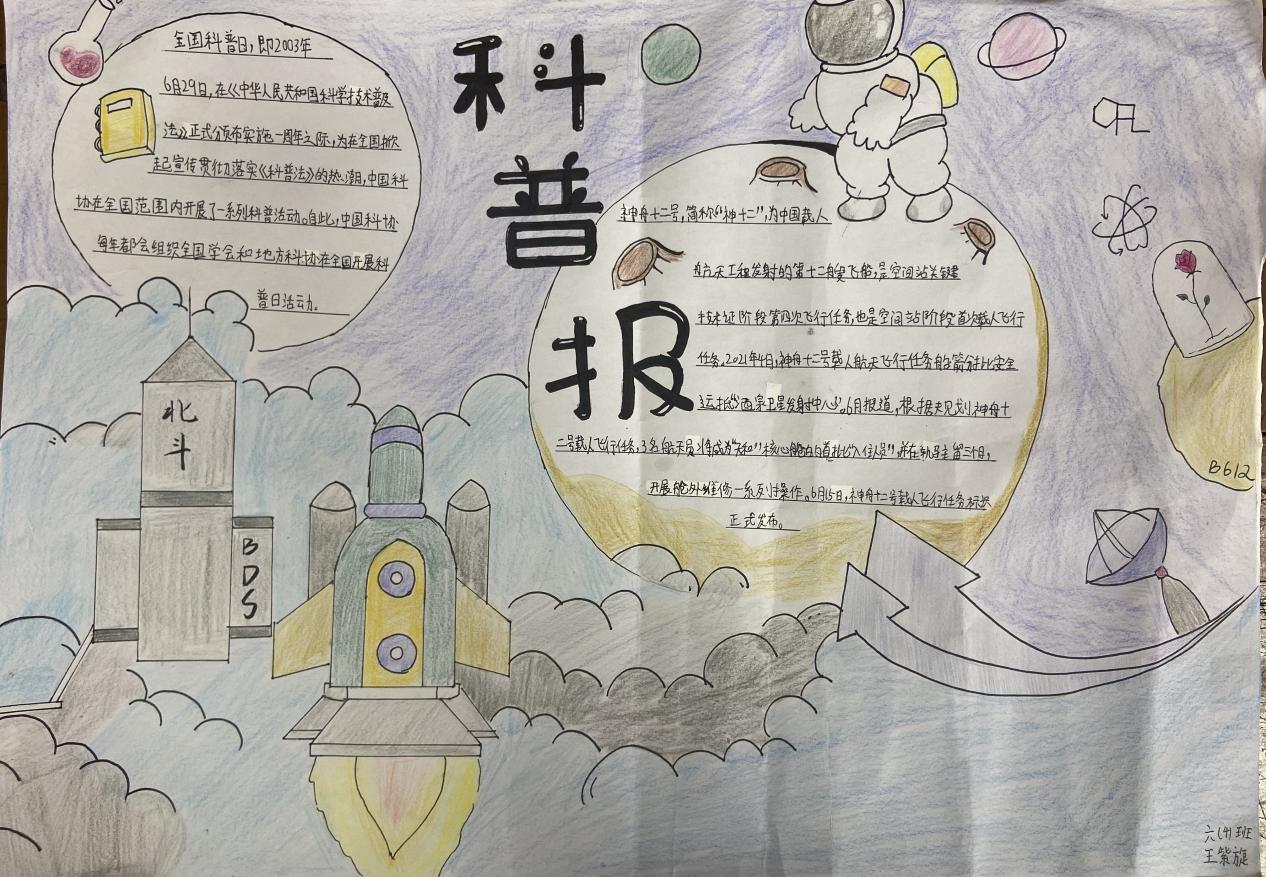 全国科普日，即2003年
6月29日，在《中华人民共和国科学技术普及
法》正式颁布实施一周年之际，为在全国掀
起宣传贯彻落实《科普法》的热潮，中国科
协在全国范围内开展了一系列科普活动。自此，中国科协
每年都会组织全国学会和地方科协在全国开展科
普日活动。
科
普
报
神舟十二号，简称“神十二”，为中国载人
航天工程发射的第十二艘飞船，是空间站关键
技术证阶段第四次飞行任务，也是空间站阶段首次载人飞行
任务。2021年4月，神舟十二号载人航天飞行任务船箭
安全
运抵
卫星发射中心。6月报道，根据
划神舟十
二号载人飞行任务，3名航天员将成为天和“核心舱的首批“入住人员”，并在轨驻留三个月，
开展舱外维修
一系列操作。6月15日，神舟十二号载人飞行任务标识
正式发布。
北
斗
B
D
S
B612
六(4)班
王紫旋